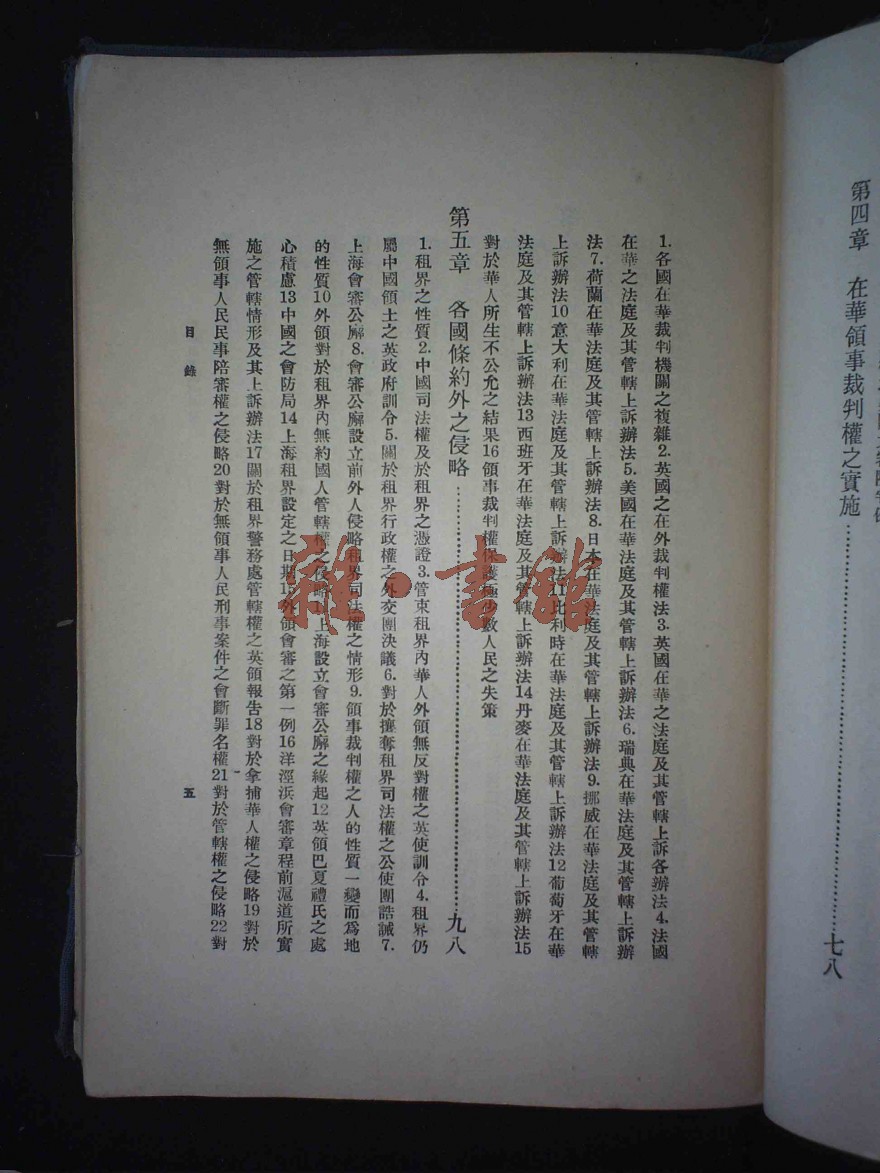 第四章　在華領事裁判權之實施……七八
1.各國在華裁判機關之複雜2.英國之在外裁判權法3.英國在華之法庭及其管轄上訴各辦法4.法國
在華之法庭及其管轄上訴辦法5.美國在華法庭及其管轄上訴辦法6.瑞典在華法庭及其管轄上訴辦
法7.荷蘭在華法庭及其管轄上訴辦法8.日本在華法庭及其管轄上訴辦法9.挪威在華法庭及其管轄
上訴辦法10意大利在華法庭及其管轄上訴辦法11比利時在華法庭及其管轄上訴辦法12葡萄牙在華
法庭及其管轄上訴辦法13西班牙在華法庭及其管轄上訴辦法14丹麥在華法庭及其管轄上訴辦法15
對於華人所生不公允之結果16領事裁判權保護極少數人民之失策
第五章　各國條約外之侵略……九八
1.租界之性質2.中國司法權及於租界之憑證3.管束租界內華人外領無反對權之英使訓令4.租界仍
屬中國領土之英政府訓令5.關於租界行政權之外交團決議6.對於攘奪租界司法權之公使團誥誡7.
上海會審公廨8.會審公廨設立前外人侵略租界司法權之情形9.領事裁判權之人的性質一變而爲地
的性質10外領對於租界內無約國人管轄權之侵略11上海設立會審公廨之緣起12英領巴夏禮氏之處
心積慮13中國之會防局14上海租界設定之日期15外領會審之第一例16洋涇浜會審章程前滬道所實
施之管轄情形及其上訴辦法17關於租界警務處管轄權之英領報告18對於拿捕華人權之侵略19對於
無領事人民民事陪審權之侵略20對於無領事人民刑事案件之會斷罪名權21對於管轄權之侵略22對
目錄
五
雜·書館